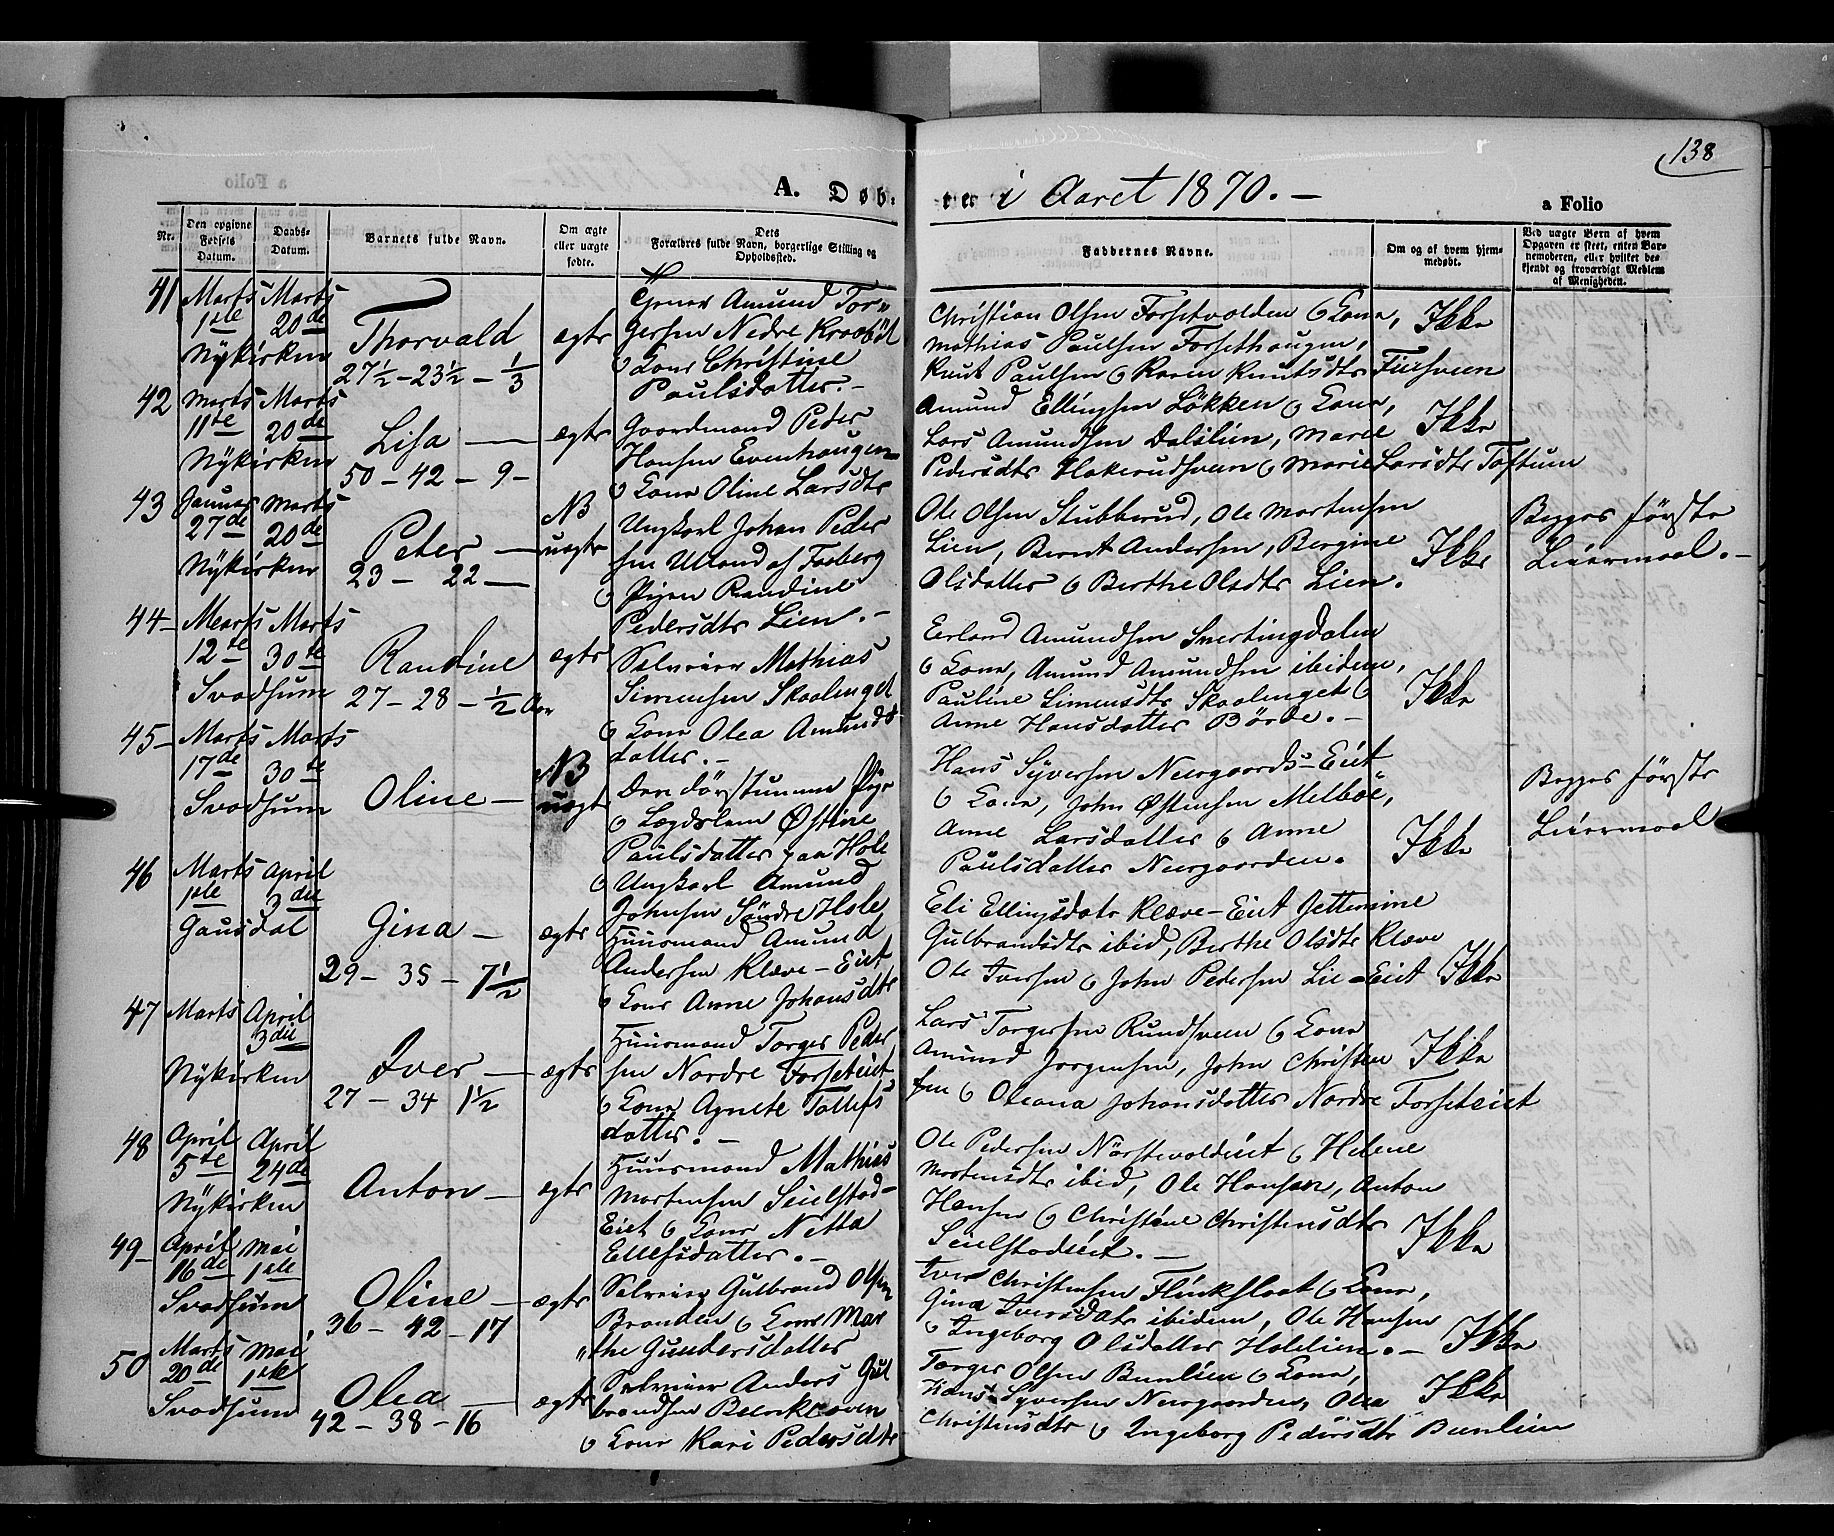 138
A. Døb- te i Aaret 1870. –
a Folio
Nr.
Den opgivne Fødsels Datum.
Daabs-Datum.
Barnets fulde Navn.
Om ægte eller uægte fødte.
Dets Forældres fulde Navn, borgerlige Stilling og Opholdssted.
Faddernes Navne.
Om og af hvem hjemmedøbt.
Ved uægte Børn af hvem Opgaven er skeet, enten Barnemoderen, eller hvilket bekjendt og troværdigt Medlem af Menigheden.
41 Marts 1ste Marts 20de
Nykirken
Thorvald
27½ – 23½ – ⅓
ægte
Amund Tor-
gersen Nedre
& Kone Christine
Paulsdatter. –
Christian Olsen Forsetvolden & Kone,
Mathias Paulsen Forsethaugen,
Knut Paulsen & Karen Knutsdtr
Ikke
42 Marts 11te Marts 20de
Nykirken
Lisa –
50 – 42 – 9 –
ægte
Gaardmand Peder
Hansen Evenhaugen
& Kone Oline Larsdtr
Amund Ellingsen Løkken & Kone,
Lars Amundsen Dalslien, Marie
Pedersdtr & Marie Larsdtr Toftum
Ikke
43 Januar 27de Marts 20de
Nykirken
Peter –
23 – 22 –
NB
uægte
Ungkarl Johan Peder
sen af Faaberg
& Pigen Randine
Pedersdtr Lien. –
Ole Olsen Stubberud, Ole Mortensen
Lien, Bernt Andersen, Bergine
Olsdatter & Berthe Olsdtr Lien.
Ikke
Begges første
Leiermaal. –
44 – Marts 12te Marts 30te
Svadsum
Randine
27 – 28 – ½ Aar
ægte
Selveier Mathias
Simensen Skaalenget
& Kone Olea Amunds
datter. –
Erland Amundsen Snertingdalen
& Kone, Amund Amundsen ibidem,
Pauline Simensdtr Skaalenget &
Anne Hansdatter –
Ikke
45 – Marts 17de Marts 30te
Svadsum
Oline –
NB
uægte
Den døvstumme Pige
& Lægdslem Østine
Paulsdatter paa Hole
& Ungkarl Amund
Johnsen Søndre Hole
Hans Syversen Neergaards-Eiet
& Kone, John Østensen Melbøe,
Anne Larsdatter & Anne
Paulsdatter Neergaarden.
Ikke
Begges første
Leiermaal
46 Marts 1ste April 3die
Gausdal
Gina –
29 – 35 – 7½
ægte
Huusmand Amund
Andersen Kleve-Eiet
& Kone Anne Johansdtr
Eli Ellingsdatr Kleve-Eiet Jettemine
Gulbrandsdtr ibid, Berthe Olsdtr Kleve
Ole Iversen & John Pedersen Lie-Eiet
Ikke
47 Marts April 3die
Nykirken
Iver –
27 – 34 1½
ægte
Huusmand Torger Peder
sen Nordre Forseteiet
& Kone Agnete Tollefs
datter. –
Lars Torgersen Rundsveen & Kone
Amund Jorgensen, John Christian
sen & Oleana Johansdatter Nordre Forseteiet
Ikke
48 April 5te April 24de
Nykirken
Anton –
ægte
Huusmand Mathias
Mortensen Seielstad-
Eiet & Kone Netta
Ellefsdatter. –
Ole Pedersen & Helene
Mortensdtr ibid, Ole Hansen, Anton
Hansen & Christine Christensdtr
Seielstadeiet. –
Ikke
49 – April 16de Mai 1ste
Svadsum
Oline –
36 – 42 – 17
ægte
Selveier Gulbrand Olsen
Branden & Kone Mar
the Gundersdatter
Iver Christensen Flinkslaat & Kone,
Gina Iversdatr ibidem, Ole Hansen
& Ingeborg Olsdatter Holelien. –
Ikke
50 Marts 20de Mai 1ste
Svadsum
Olea –
42 – 38 – 16
ægte
Selveier Anders Gul
brandsen
& Kone Kari Pedersdtr
Torger Olsen Bunlien & Kone,
Hans Syversen Neergaarden, Olea
Christensdtr & Ingeborg Pedersdtr Bunlien
Ikke